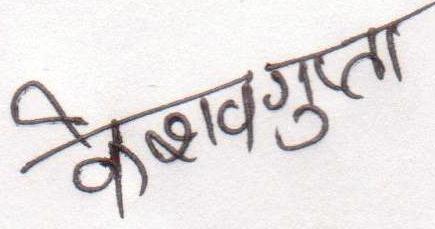 केशव गुप्ता